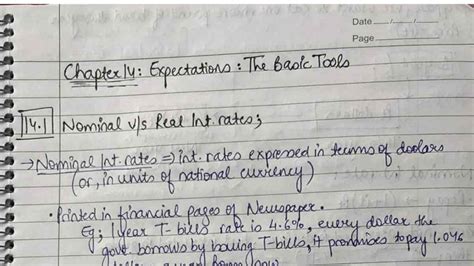 Date ___/___/___
Page
Chapter 14: Expectations: The Basic Tools
14.1 Nominal v/s Real Int. rates;
→ Nominal Int. rates ⇒ int. rates expressed in terms of doolars
(or, in units of national currency)
• Printed in financial pages of Newspaper.
Eg; 1 year T-bills rate is 4.6%, every dollar the
govt. borrows by issuing T-bills, it promises to pay 1.046